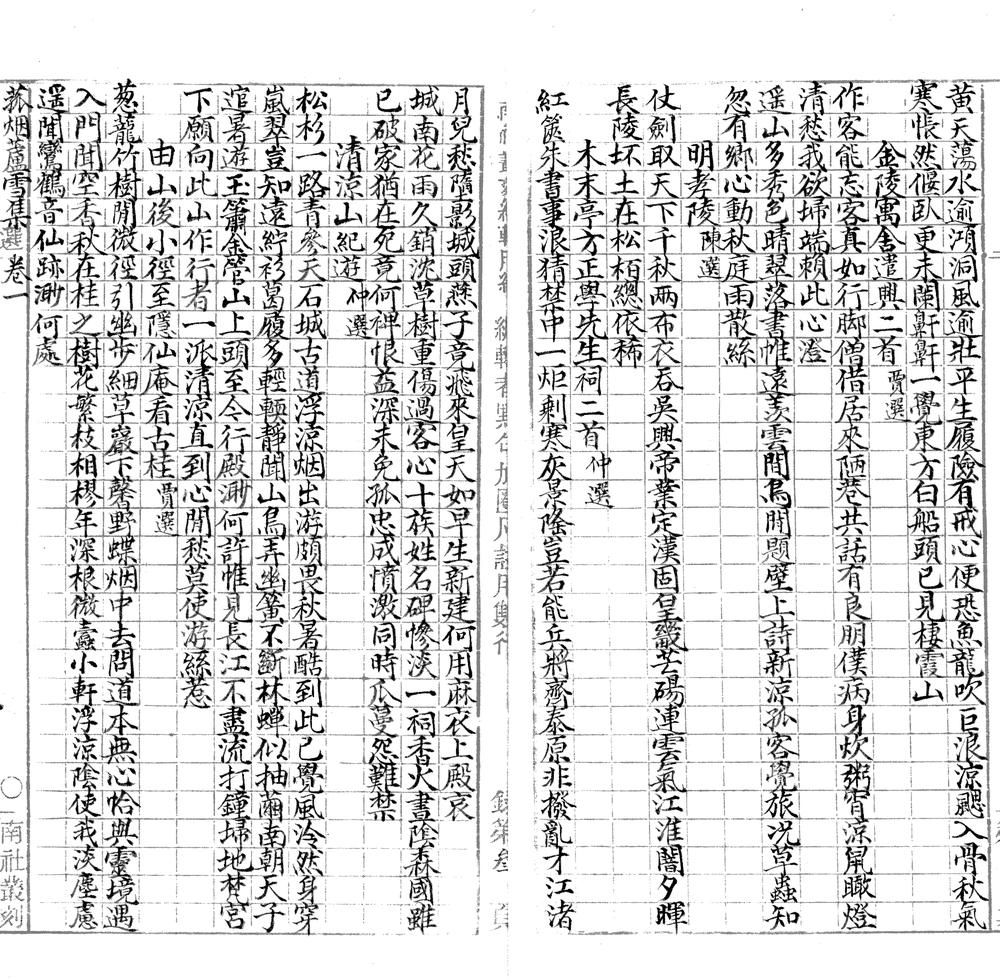 黃天蕩水逾澒洞風逾壯平生履險有戒心便恐魚龍吹巨浪涼颸入骨秋氣
寒悵然偃臥更未闌鼾鼾一覺東方白船頭已見棲霞山
金陵寓舍遣興二首 賈選
作客能忘客真如行脚僧借居來陋巷共話有良朋僕病身炊粥宵涼鼠瞰燈
清愁我欲埽端賴此心澄
遥山多秀色晴翠落書帷遠羨雲閒鳥閒題壁上詩新涼孤客覺旅況草蟲知
忽有鄉心動秋庭雨散絲
明孝陵 陳選
仗劍取天下千秋兩布衣吞吳興帝業定漢固皇畿芒碭連雲氣江淮闇夕暉
長陵坏土在松柏總依稀
木末亭方正學先生祠二首 仲選
紅篋朱書事浪猜禁中一炬剩寒灰景隆豈若能兵將齊泰原非撥亂才江渚
月兒愁墮影城頭燕子竟飛來皇天如早生新建何用麻衣上殿哀
城南花雨久銷沈草樹重傷過客心十族姓名碑慘淡一祠香火晝陰森國雖
已破家猶在死竟何裨恨益深未免孤忠成憤激同時瓜蔓怨難禁
清涼山紀遊 仲選
松杉一路青參天石城古道浮涼烟出游頗畏秋暑酷到此已覺風泠然身穿
嵐翠豈知遠紵衫葛履多輕輭靜聞山鳥弄幽簧不斷林蟬似抽繭南朝天子
逭暑遊玉簫金管山上頭至今行殿渺何許惟見長江不盡流打鐘埽地梵宮
下願向此山作行者一派清涼直到心閒愁莫使游絲惹
由山後小徑至隱仙庵看古桂 賈選
葱蘢竹樹閒微徑引幽步細草巖下馨野蝶烟中去問道本無心恰與靈境遇
入門聞空香秋在桂之樹花繁枝相樛年深根微蠹小軒浮涼陰使我淡塵慮
遥聞鸞鶴音仙跡渺何處
菰烟蘆雪集選 卷一
南社叢刻